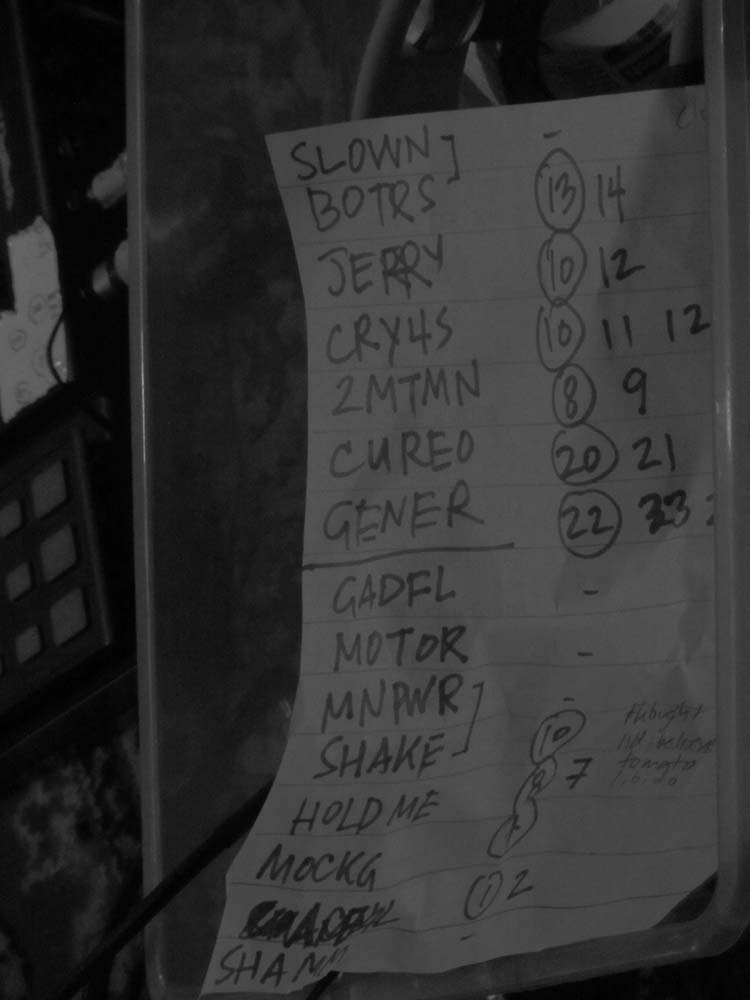 SLOWN ] -
BOTRS 13 14
JERRY 10 12
CRY4S 10 11 12
2MTMN 8 9
CURED 20 21
GENER 22 23
GADFL -
MOTOR -
MNPWR ] -
SHAKE 10
HOLD ME 7
MOCKG 1 2
SHAMM -
thought
tomato